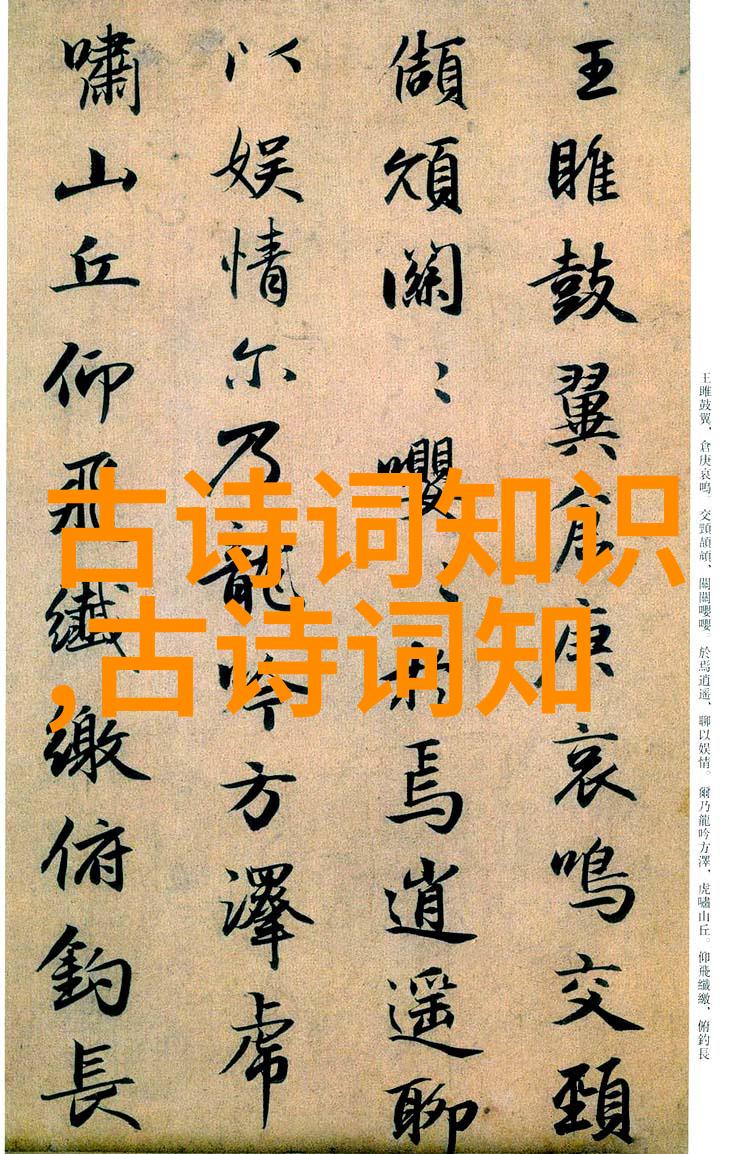 王雎鼓翼倉庚哀鳴交頸
頡頏關〻嚶〻於焉逍遥聊
以娱情尔乃龍吟方澤虎
嘯山丘仰飛纖繳俯釣長
古诗词知识
,古诗词知
王雎鼓翼、倉庚哀鳴。交頸頡頏、關關嚶嚶。於焉逍遥、聊以娱情。爾乃龍吟方澤、虎嘯山丘。仰飛纖繳、俯釣長